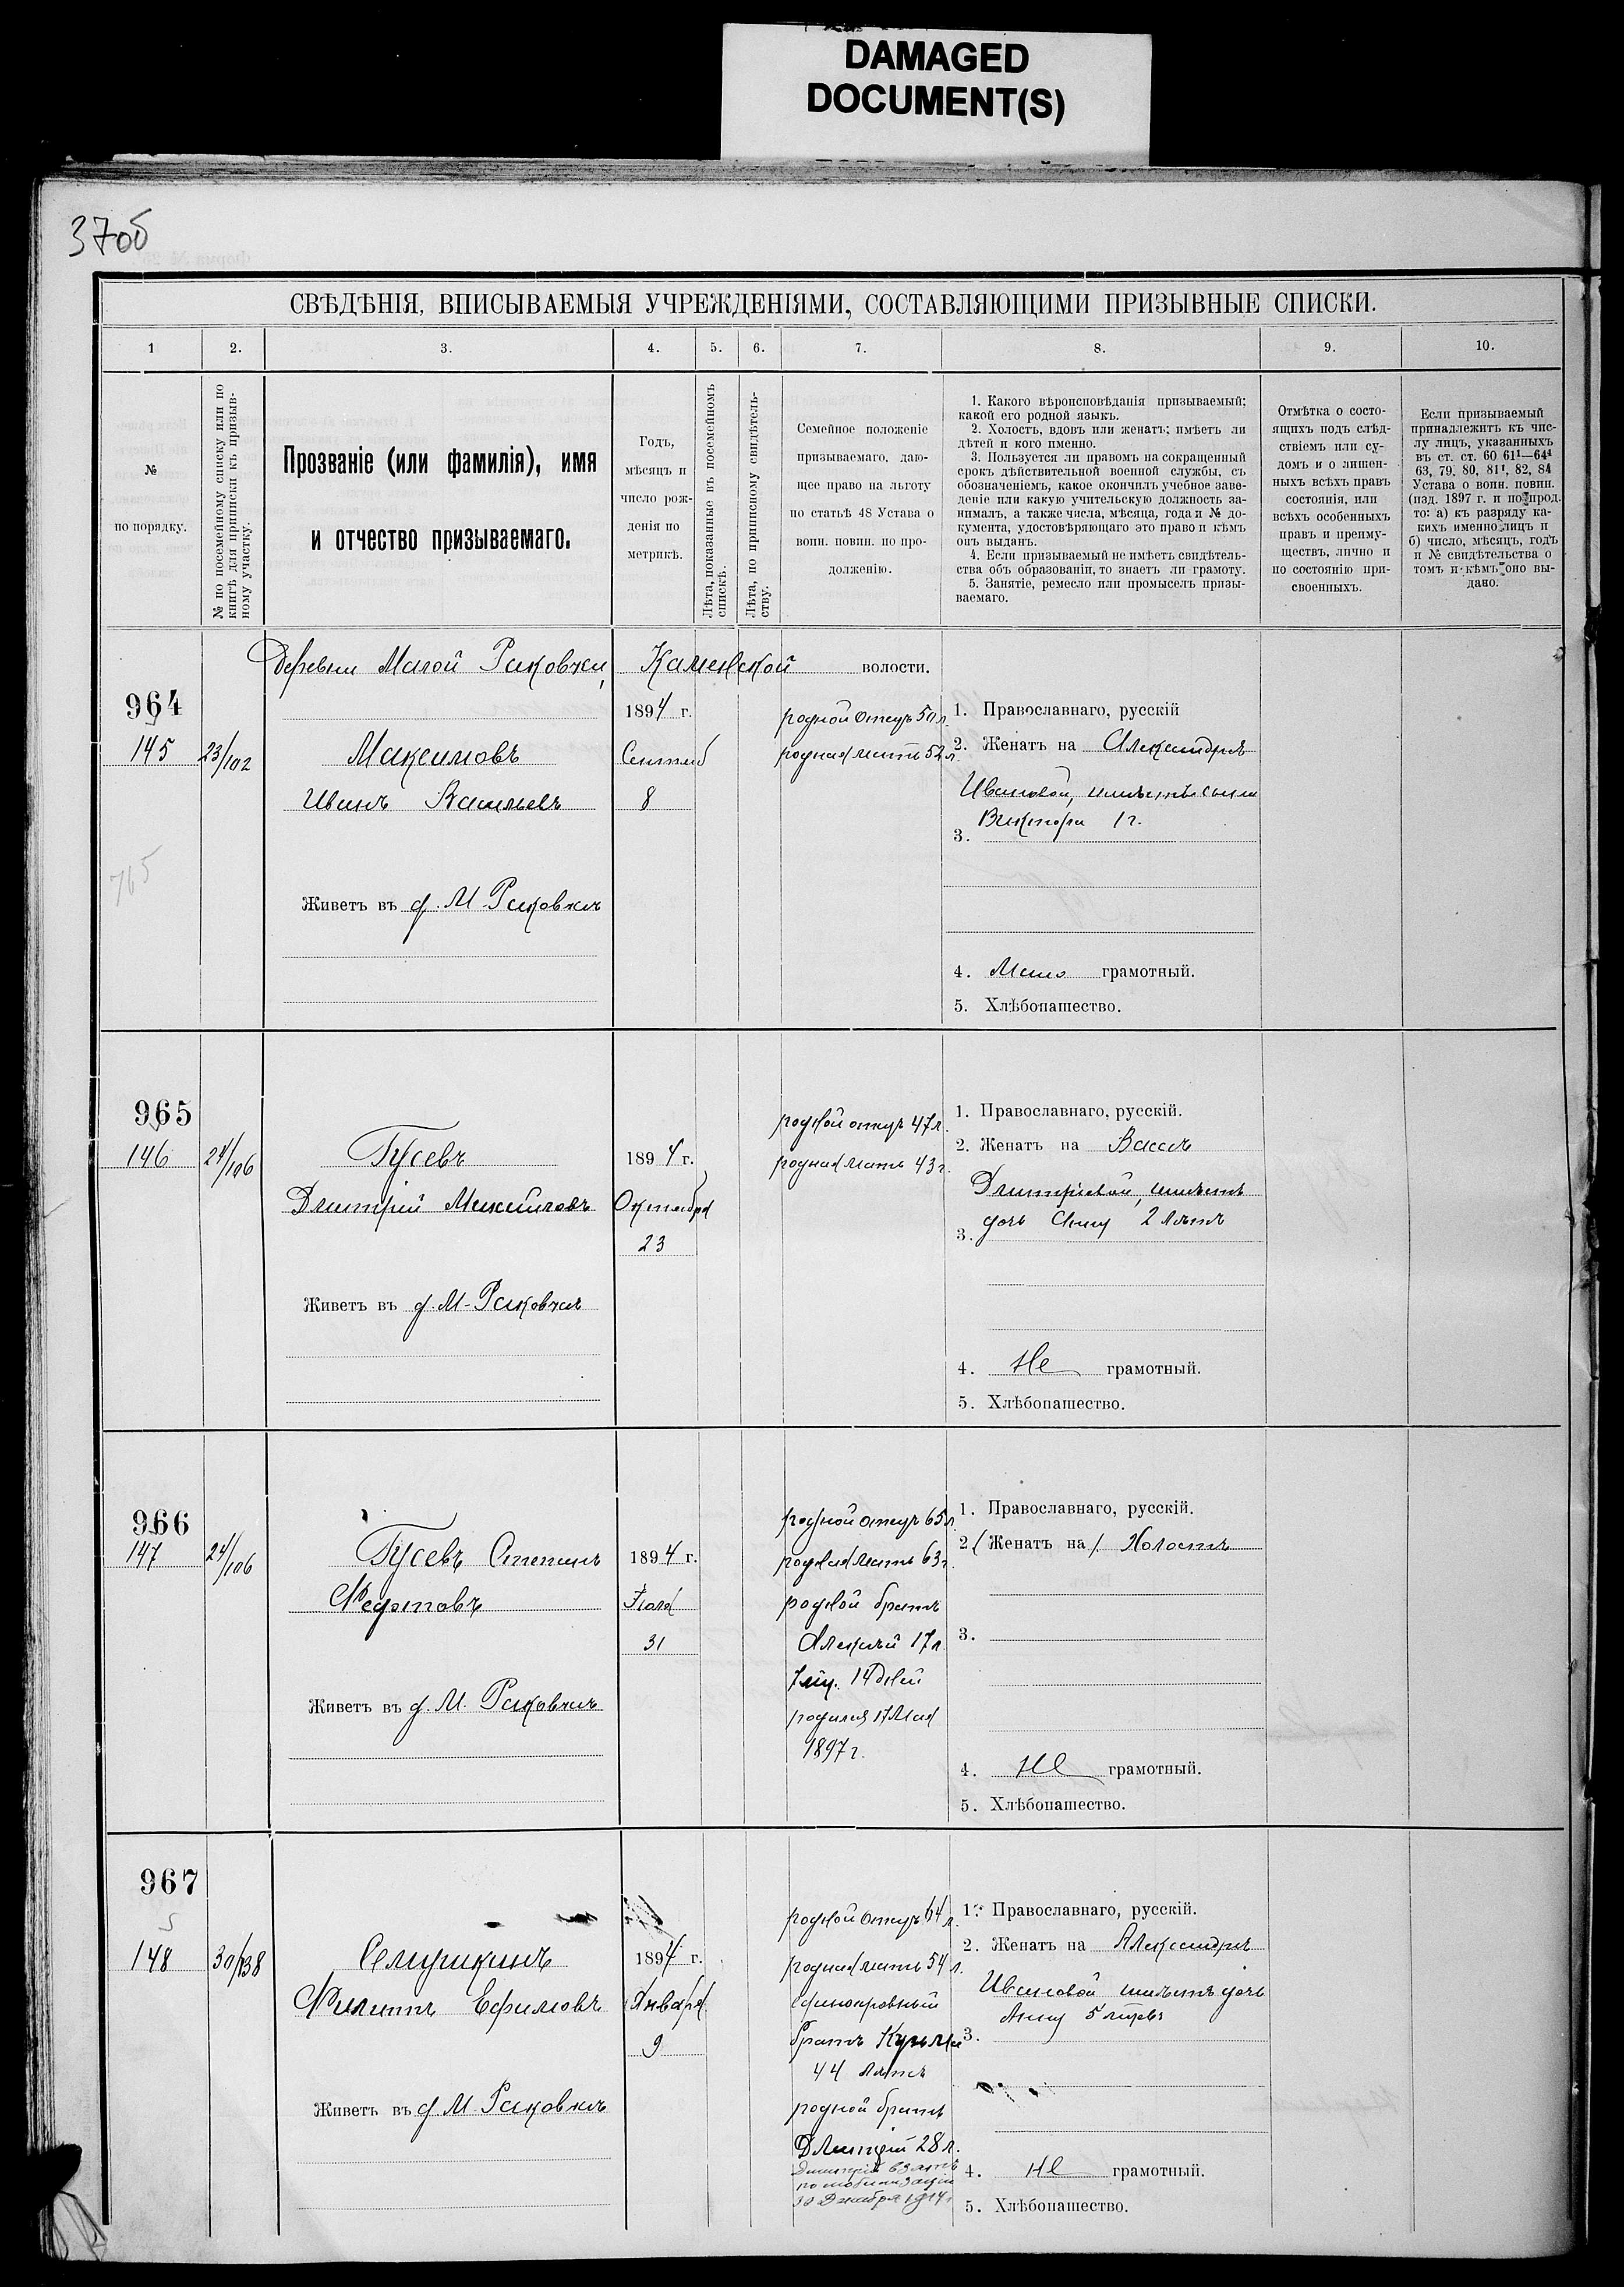 DAMAGED
DOCUMENT(S)
37об
СВѢДѢНІЯ, ВПИСЫВАЕМЫЯ УЧРЕЖДЕНІЯМИ, СОСТАВЛЯЮЩИМИ ПРИЗЫВНЫЕ СПИСКИ.
1 2. 3. 4. 5. 6. 7. 8. 9. 10.
№
по порядку.
№ по посемейному списку или по
книгѣ для приписки къ призыв-
ному участку.
Прозваніе (или фамилія), имя
и отчество призываемаго.
Годъ,
мѣсяцъ и
число рож-
денія по
метрикѣ.
Лѣта, показанные въ посемейномъ
спискѣ.
Лѣта, по приписному свидѣтель-
ству.
Семейное положеніе
призываемаго, даю-
щее право на льготу
по статьѣ 48 Устава о
воин. повин. по про-
долженію.
1. Какого вѣроисповѣданія призываемый;
какой его родной языкъ.
2. Холостъ, вдовъ или женатъ; имѣетъ ли
дѣтей и кого именно.
3. Пользуется ли правомъ на сокращенный
срокъ дѣйствительной военной службы, съ
обозначеніемъ, какое окончилъ учебное заве-
деніе или какую учительскую должность за-
нималъ, а также числа, мѣсяца, года и № до-
кумента, удостовѣряющаго это право и кѣмъ
онъ выданъ.
4. Если призываемый не имѣетъ свидѣтель-
ства объ образованіи, то знаетъ ли грамоту.
5. Занятіе, ремесло или промыселъ призы-
ваемаго.
Отмѣтка о состо-
ящихъ подъ слѣд-
ствіемъ или су-
домъ и о лишен-
ныхъ всѣхъ правъ
состоянія, или
всѣхъ особенныхъ
правъ и преиму-
ществъ, лично и
по состоянію при-
своенныхъ.
Если призываемый
принадлежитъ къ чис-
лу лицъ, указанныхъ
въ ст. ст. 60 61¹—64⁴
63, 79, 80, 81¹, 82, 84
Устава о воин. повин.
(изд. 1897 г. и по прод.
то: а) къ разряду ка-
кихъ именно лицъ и
б) число, мѣсяцъ, годъ
и № свидѣтельства о
томъ и кѣмъ оно вы-
дано.
Деревни Малой Раковки, Каменской волости.
964
145 23/102
765
Максимовъ
Иванъ Васильевъ
Живетъ въ д. М-Раковкѣ
1894 г.
Сентяб
8
родной отецъ 50 л.
родная мать 52 л.
1. Православнаго, русскій
2. Женатъ на Александрѣ
Ивановой, имѣетъ сына
Виктора 1 г.
3.
4. Мало грамотный.
5. Хлѣбопашество.
965
146 24/106
Гусевъ
Дмитрій Михайловъ
Живетъ въ д. М-Раковкѣ
1894 г.
Октября
23
родной отецъ 47 л.
родная мать 43 г.
1. Православнаго, русскій.
2. Женатъ на Вассѣ
Дмитріевой, имѣетъ
дочь Анну 2 лѣтъ
3.
4. Не грамотный.
5. Хлѣбопашество.
966
147 24/106
Гусевъ Степанъ
Федотовъ
Живетъ въ д. М. Раковкѣ
1894 г.
Іюля
31
родной отецъ 65 л.
родная мать 63 г.
родной братъ
Алексѣй 17 л.
7 мц. 14 дней
родился 17 Мая
1897 г.
1. Православнаго, русскій.
2 (Женатъ на). Холостъ
3.
4. Не грамотный.
5. Хлѣбопашество.
967
148 30/138
Семушкинъ
Филиппъ Ефимовъ
Живетъ въ д. М. Раковкѣ
1894 г.
Января
9
родной отецъ 64 л.
родная мать 54 л.
единокровный
братъ Кузьма
44 лѣтъ
родной братъ
Дмитрій 28 л.
Дмитрій взятъ
по мобилизаціи
30 Декабря 1914 г
1. Православнаго, русскій.
2. Женатъ на Александрѣ
Ивановой имѣетъ дочь
Анну 5 мѣсяцевъ
3.
4. Не грамотный.
5. Хлѣбопашество.